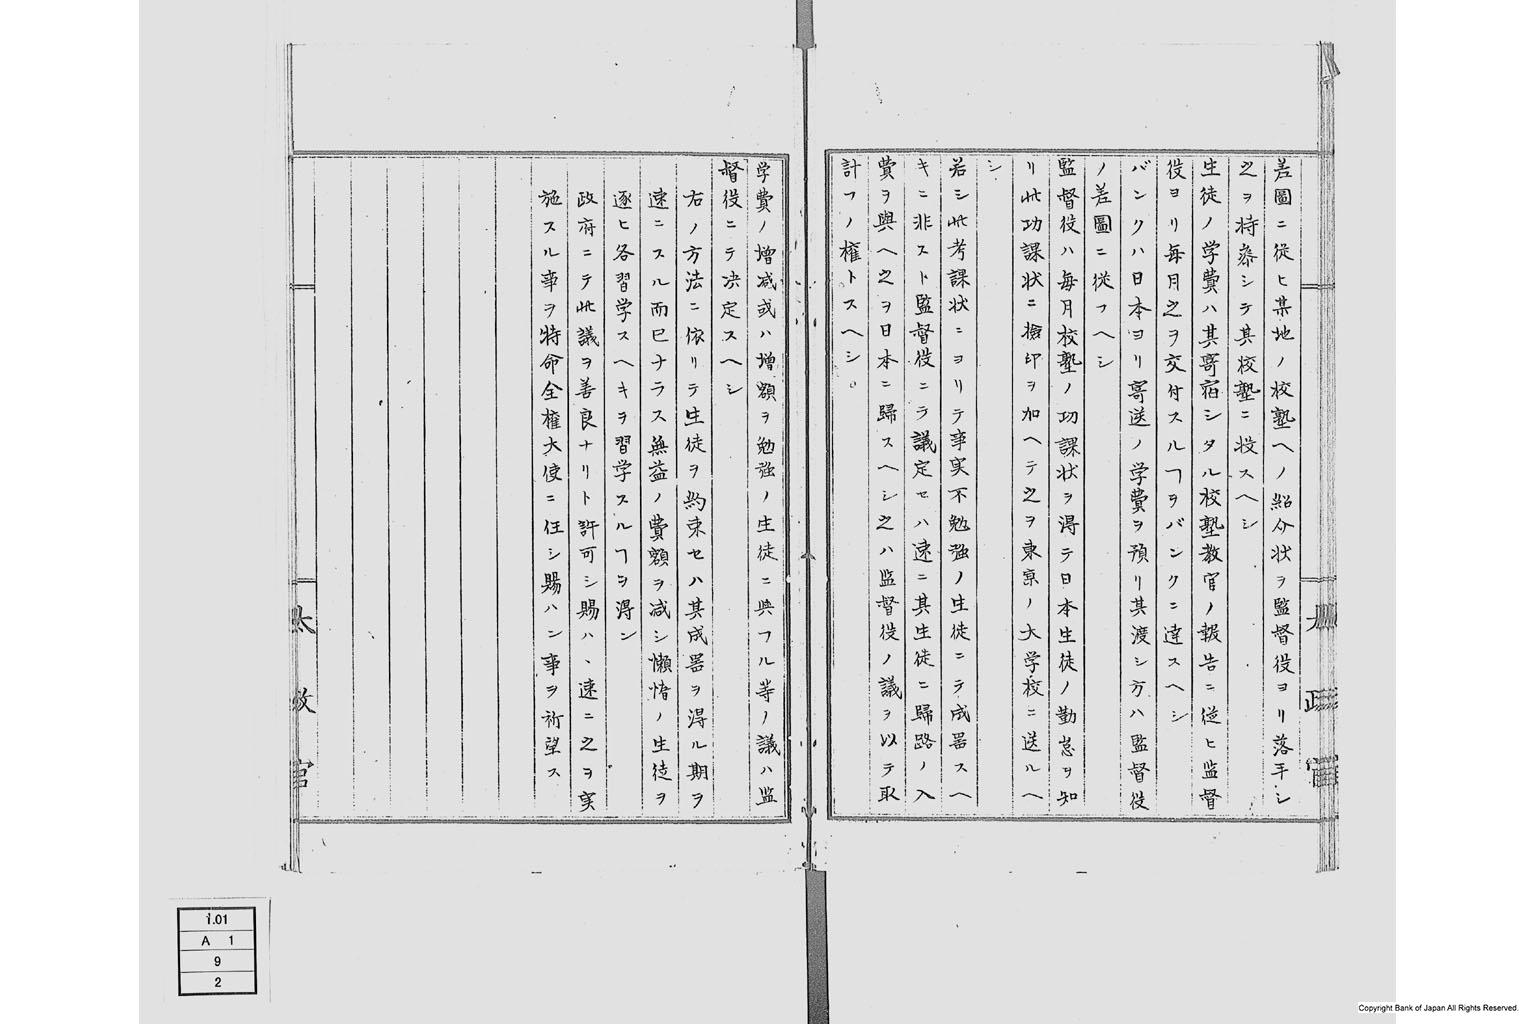 差圖ニ従ヒ某地ノ校塾ヘノ紹介状ヲ監督役ヨリ落手シ
之ヲ持参シテ其校塾ニ投スヘシ
生徒ノ学費ハ其寄宿シタル校塾教官ノ報告ニ従ヒ監督
役ヨリ毎月之ヲ交付スルヿヲバンクニ達スヘシ
バンクハ日本ヨリ寄送ノ学費ヲ預リ其渡シ方ハ監督役
ノ差圖ニ従フヘシ
監督役ハ毎月校塾ノ功課状ヲ得テ日本生徒ノ勤怠ヲ知
リ此功課状ニ撿印ヲ加ヘテ之ヲ東京ノ大学校ニ送ルヘ
シ
若シ此考課状ニヨリテ事実不勉強ノ生徒ニテ成器スヘ
キニ非スト監督役ニテ議定セハ速ニ其生徒ニ歸路ノ入
費ヲ與ヘ之ヲ日本ニ歸スヘシ之ハ監督役ノ議ヲ以テ取
計フノ權トスヘシ。
太政官
学費ノ増减或ハ増額ヲ勉強ノ生徒ニ與フル等ノ議ハ監
督役ニテ决定スヘシ
右ノ方法ニ依リテ生徒ヲ約束セハ其成器ヲ得ル期ヲ
速ニスル而已ナラス無益ノ費額ヲ减シ懶惰ノ生徒ヲ
逐ヒ各習学スヘキヲ習学スルヿヲ得ン
政府ニテ此議ヲ善良ナリト許可シ賜ハヽ速ニ之ヲ実
施スル事ヲ特命全權大使ニ任シ賜ハン事ヲ祈望ス
太政官
1.01
A 1
9
2
Copyright Bank of Japan All Rights Reserved.